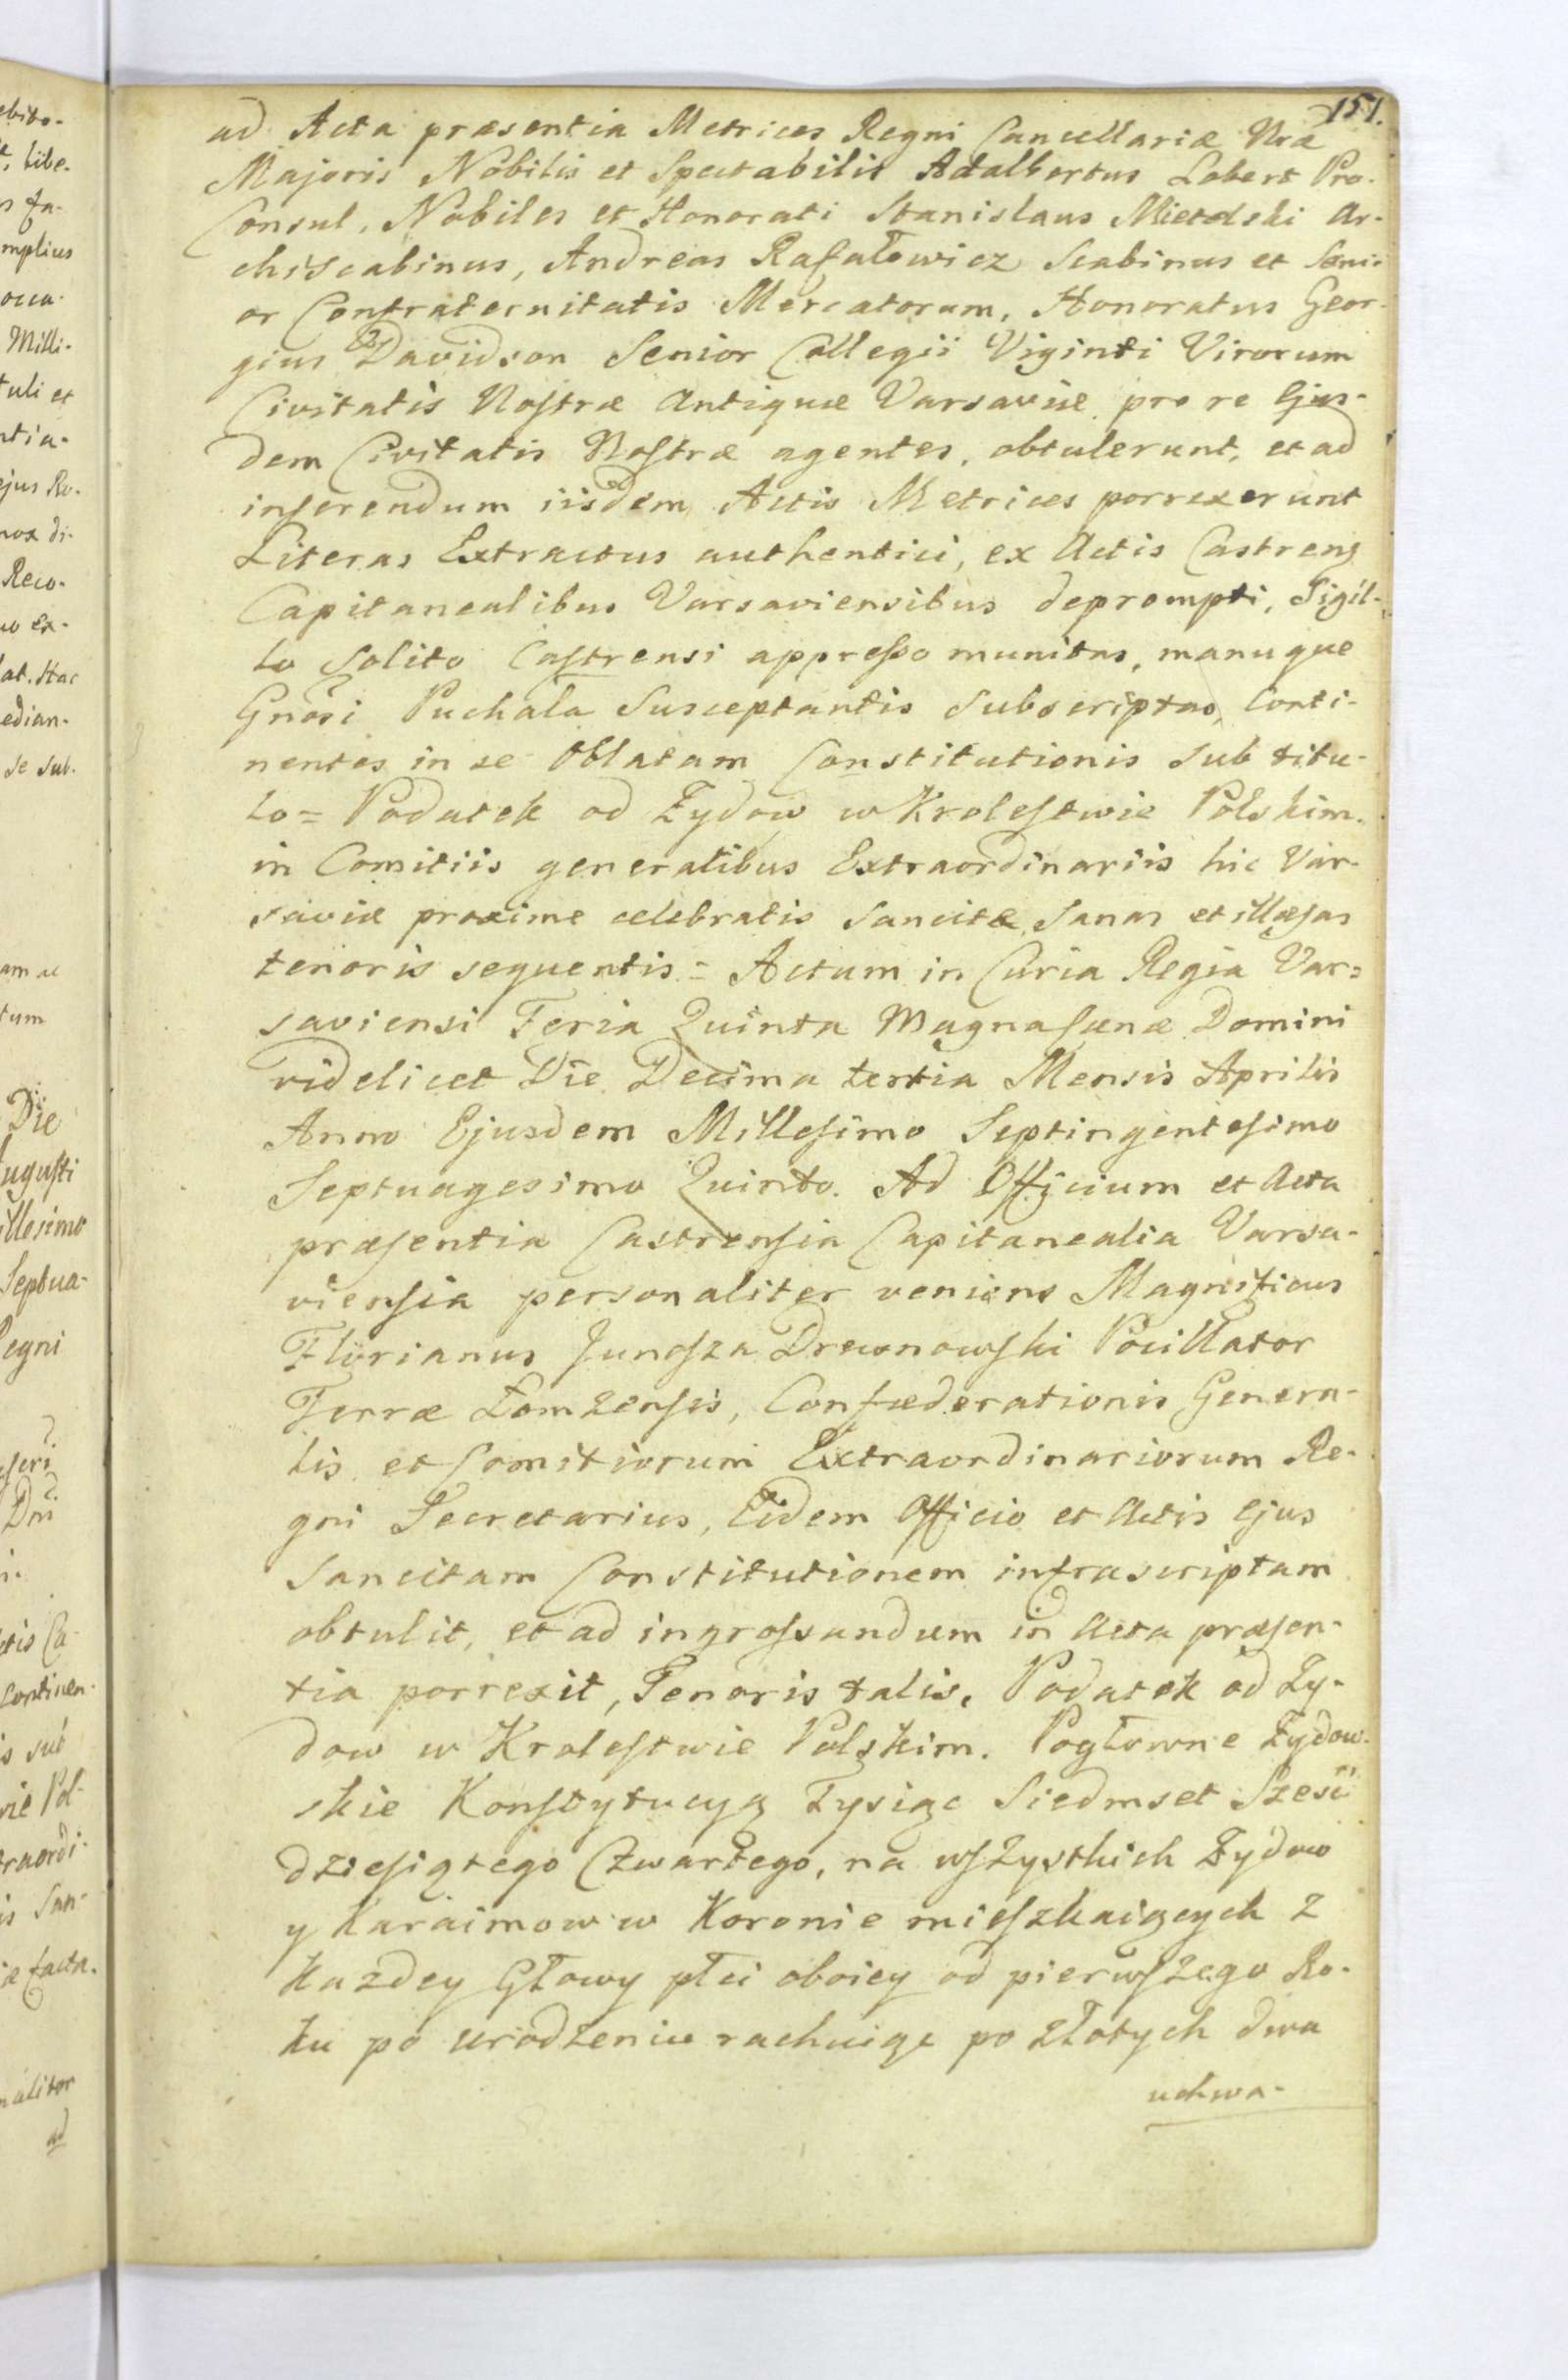 151.
ad Acta præsentia Metrices Regni Cancellariæ Nræ
Majoris Nobilis et Spectabilis Adalbertus Lobert Pro-
Consul, Nobiles et Honorati Stanislaus Mietelski Ar-
chiScabinus, Andreas Rafałowicz Scabinus et Seni-
or Confraternitatis Mercatorum, Honoratus Geor-
gius Davidson Senior Collegii Viginti Virorum
Civitatis Noſtræ Antiquæ Varsaviæ pro re Ejus-
dem Civitatis Noſtræ agentes, obtulerunt, et ad
inſerendum iisdem Actis Metrices porrexerunt
Literas Extractus authentici, ex Actis Castrens
Capitanealibus Varsaviensibus deprompti, Sigil-
lo Solito Caſtrensi appreſso munitas, manuque
Gnôsi Puchała Susceptantis Subscriptas, Conti-
nentes in se Oblatam Constitutionis Sub titu-
lo = Podatek od Żydow w Kroleſtwie Polskim.
in Comitiis generalibus Extraordinariis hic Var-
saviæ proxime celebratis Sancitæ, Sanas et illæſas
tenoris sequentis = Actum in Curia Regia Var=
saviensi Feria Quinta Magna Cænæ Domini
videlicet Die Decima tertia Mensis Aprilis
Anno Ejusdem Milleſimo Septingenteſimo
Septuagesimo Quinto. Ad Officium et Acta
præſentia Castrenſia Capitanealia Varsa-
vienſia personaliter veniens Magnificus
Florianus Junoſza Drewnowſki Pocillator
Terræ Łomzenſis, Confæderationis Genera-
lis et Comitiorum Extraordinariorum Re-
gni Secretarius, Eidem Officio et Actis Ejus
Sancitam Constitutionem infrascriptam
obtulit, et ad ingroſsandum in Acta præſen-
tia porrexit, Tenoris talis, Podatek od Ży-
dow w Kroleſtwie Polskim. Pogłowne Żydow-
skie Konſtytucyą Tysiąc Siedmset Szesć
dzieſiątego Czwartego, na wſzystkich Żydow
y Karaimow w Koronie mieſzkaiących z
Kazdey Głowy płci oboiey od pierwſzego Ro-
ku po urodzeniu rachuiąc po złotych dwa
uchwa-